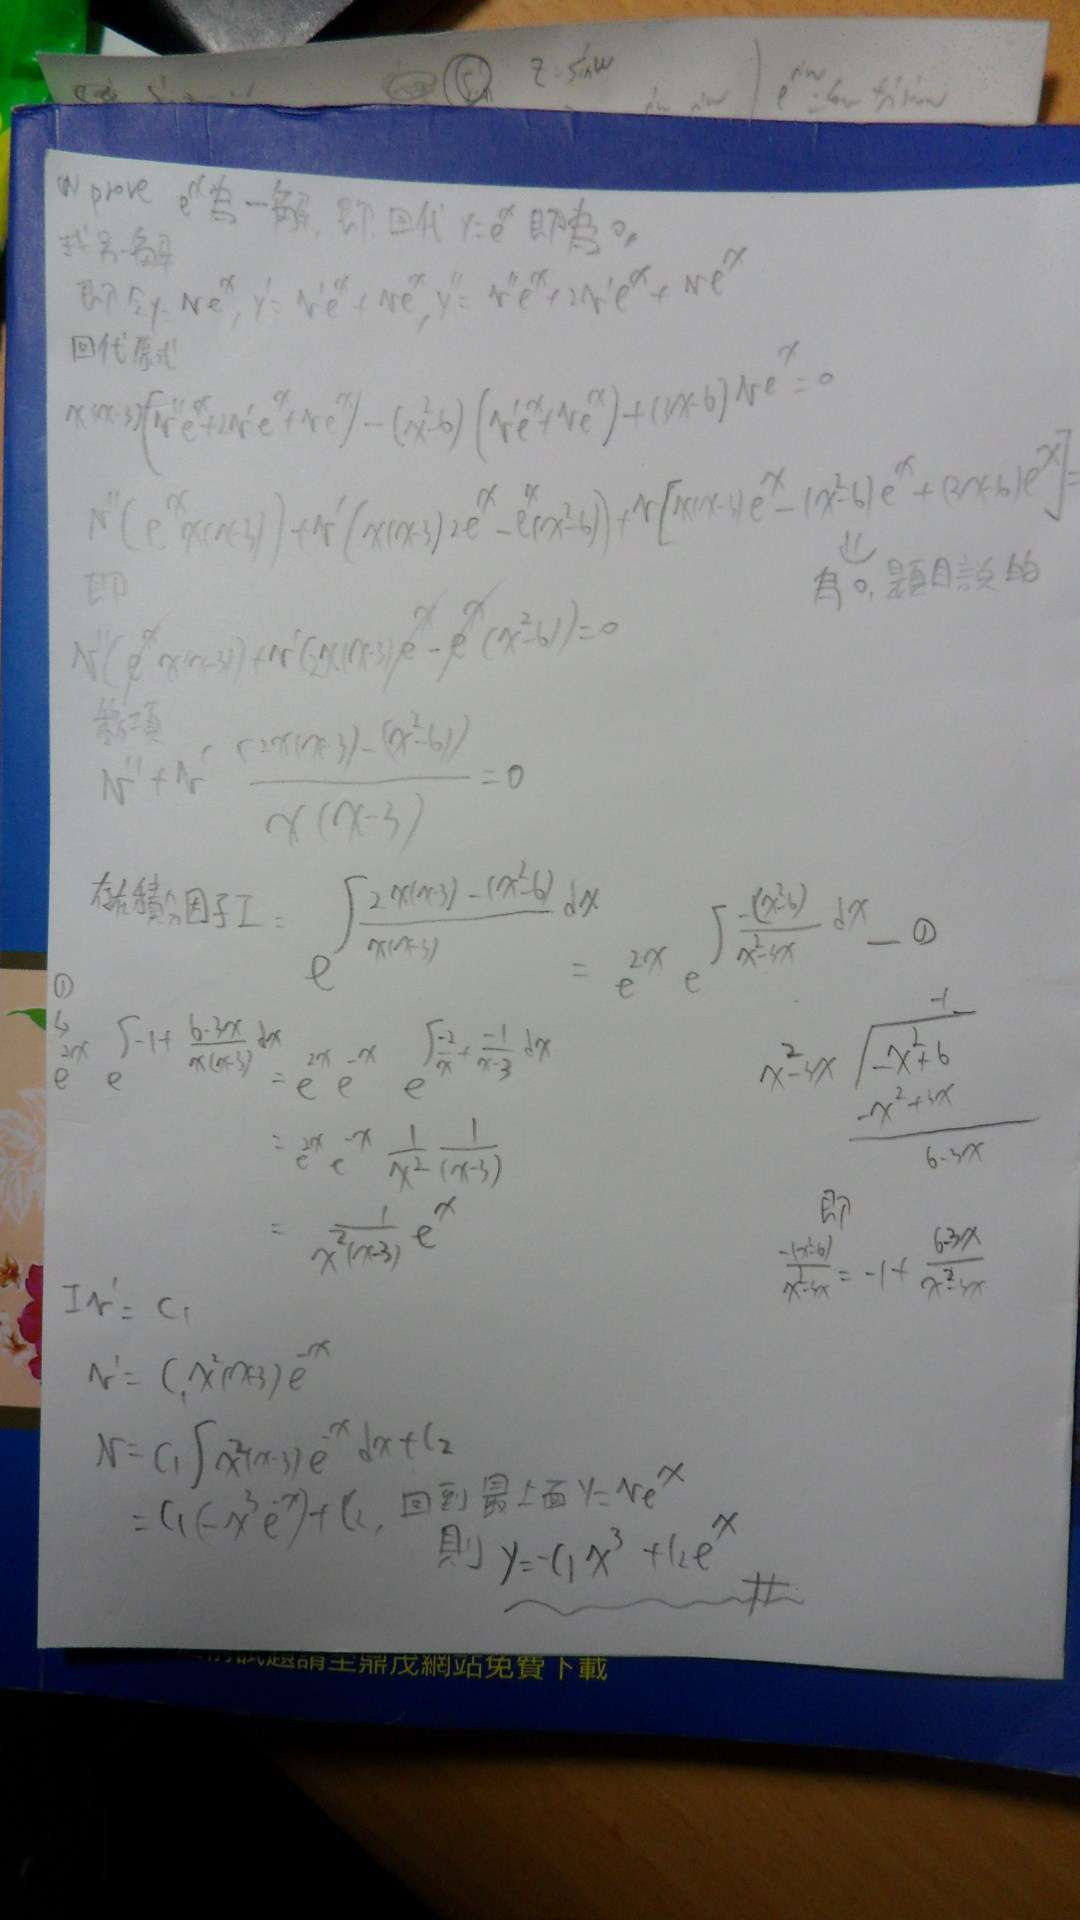 Z=sinw
prove e^x為一解, 即回代 y=e^x 即為0,
找另一解
即令y=ve^x, y'=v'e^x+ve^x, y''=v''e^x+2v'e^x+ve^x
回代原式
x(x-3)(v''e^x+2v'e^x+ve^x)-(x^2-6)(v'e^x+ve^x)+(3x-6)ve^x=0
v''(e^x x(x-3))+v'(x(x-3)2e^x-e^x(x^2-6))+v[x(x-3)e^x-(x^2-6)e^x+(3x-6)e^x]=
為0, 題目說的
即
v''(e^x x(x-3))+v'(2x(x-3)e^x-e^x(x^2-6))=0
移項
v''+v' (2x(x-3)-(x^2-6))/(x(x-3))=0
存在積分因子I = e^∫(2x(x-3)-(x^2-6))/(x(x-3)) dx = e^2x e^∫(-(x^2-6))/(x^2-3x) dx — ①
①
↳ e^2x e^∫-1+(6-3x)/(x(x-3)) dx = e^2x e^-x e^∫-2/x+-1/(x-3) dx
= e^2x e^-x 1/x^2 1/(x-3)
= 1/(x^2(x-3)) e^x
-1
x^2-3x √-x^2+6
-x^2+3x
6-3x
即
-(x^2-6)/(x^2-3x) = -1+(6-3x)/(x^2-3x)
Iv'=C1
v'=C1x^2(x-3)e^-x
v=C1∫x^2(x-3)e^-x dx+C2
=C1(-x^3e^-x)+C2, 回到最上面y=ve^x
則 y=-C1x^3+C2e^x #
試題請至鼎茂網站免費下載